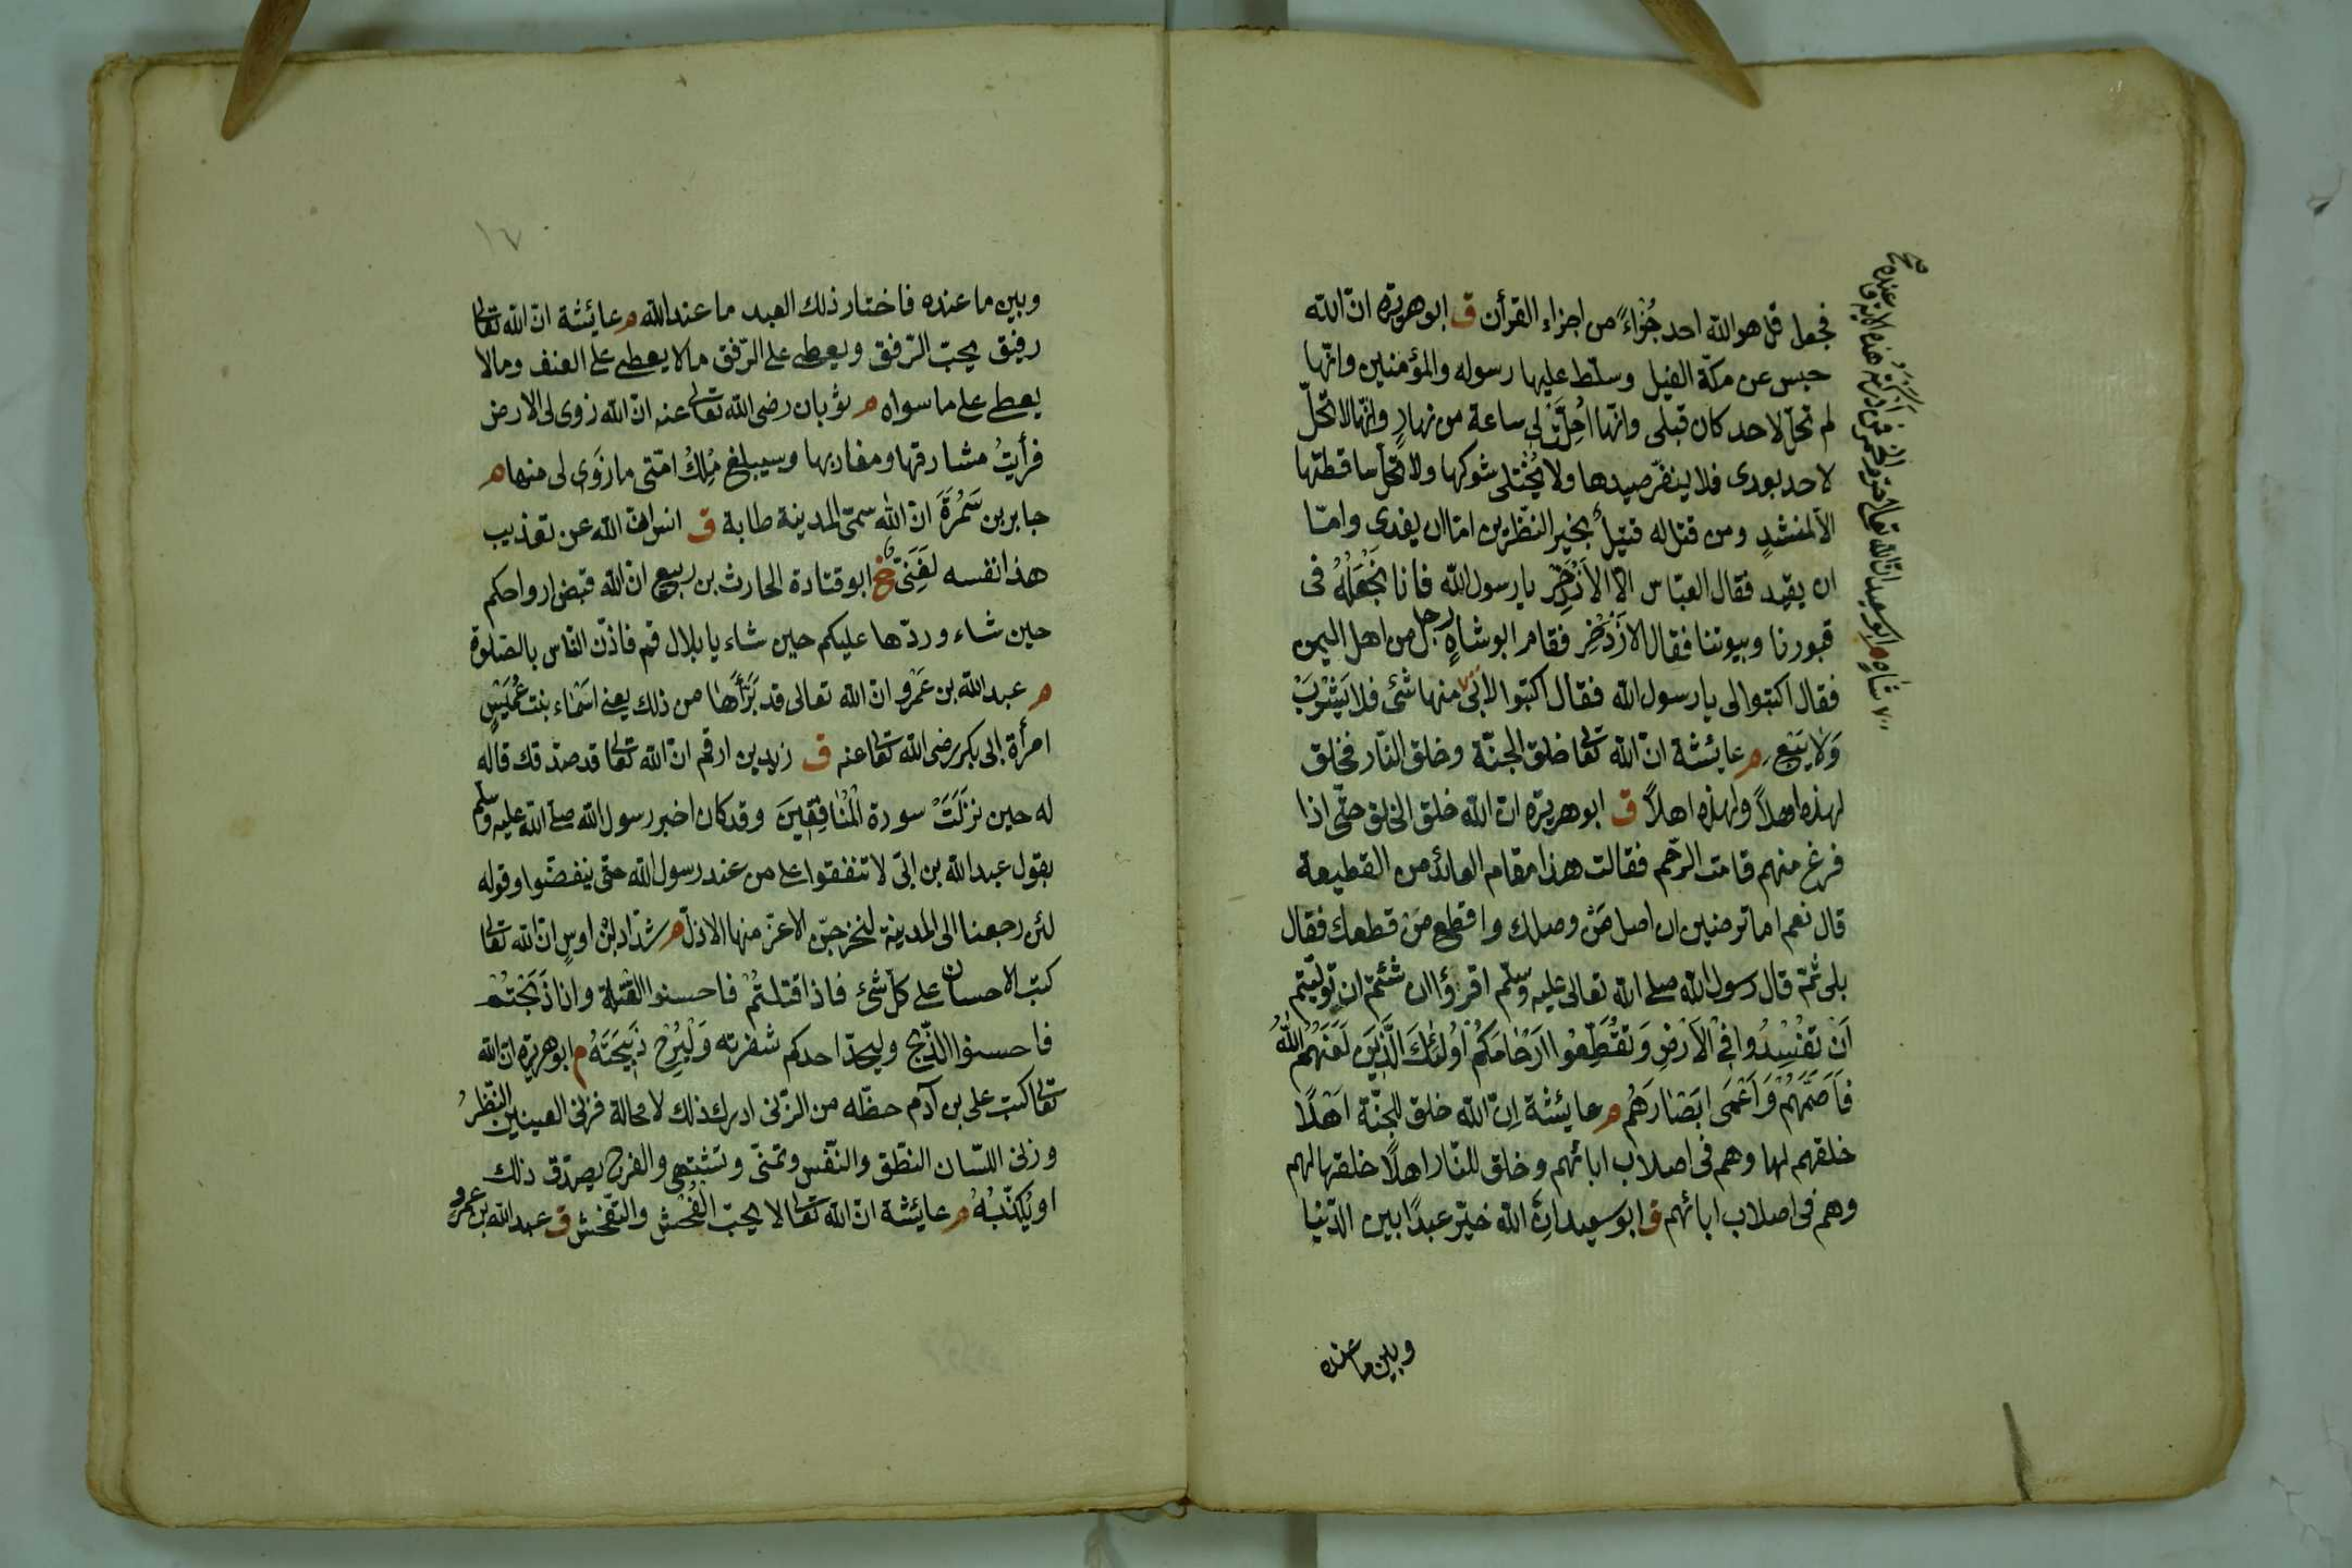 فجعل قل هو الله احد جُزْاءً من اجزاء القرأن ق ابو هريرة ان الله
حبس عن مكّة الفيل وسلّط عليها رسوله والمؤمنين وانّها
لم تحلّ لاحد كان قبلى وانّها اُحِلَّتْ لى ساعة من نهارٍ وانّها لا تحلّ
لاحد بعدى فلا ينفّر صيدها ولا يُخْتلى شوكها ولا تحلّ ساقطتها
الّا لمنشدٍ ومن قتل له قتيلٌ بخير النّظرين امّا ان يفدى وامّا
ان يقيد فقال العبّاس الّا الاَذْخِر يا رسول الله فانا نَجْعَلُهُ فى
قبورنا وبيوتنا فقال الاَذْخِر فقام ابو شاهٍ رجل من اهل اليمن
فقال اكتبوا لى يا رسول الله فقال اكتبوا لابى منها شئ فلا يَشْرَبْ
وَلَا يَبَعْ م عايشة انّ الله تعا خلق الجنّة وخلق النّار فخلق
لهذه اهلاً ولهذه اهلاً ق ابو هريرة ان الله خلق الخلق حتّى اذا
فرغ منهم قامت الرّحم فقالت هذا مقام العائذ من القطيعة
قال نعم اما ترضين ان اصل مَنْ وصلك واقطع مَنْ قطعك فقال
بلى ثمّ قال رسول الله صلى الله تعالى عليه وسلّم اقرؤا ان شئتم ان تولّيتم
اَنْ تُفْسِدُوا فِى الْاَرْضِ وَتُقَطِّعُوا اَرْحَامَكُمْ اُولٰئِكَ الَّذِينَ لَعَنَهُمُ اللهُ
فَاَصَمَّهُمْ وَاَعْمَى اَبْصَارَهُمْ م عايشة اِنّ الله خلق للجنّة اَهْلًا
خلقهم لها وهم فى اصلاب ابائهم وخلق للنّار اهلًا خلقها لهم
وهم فى اصلاب ابائهم ق ابو سعيد انّ الله خيّر عبدًا بين الدّنيا
وبين ما عنده
شاهٍ م ابو سعيد ان الله تعالى حرم الخمر فمن ادركته هذه الاية
١٧
وبين ما عنده فاختار ذلك العبد ما عند الله م عايشة انّ الله تعالى
رفيق يحبّ الرّفق ويعطى على الرّفق ما لا يعطى على العنف وما لا
يعطى على ما سواه م ثوبان رضى الله تعالى عنه انّ الله زوى لى الارض
فرأيتُ مشارقها ومغاربها وسيبلغ مُلكُ امّتى ما زَوى لى منها م
جابر بن سَمُرَةَ انّ الله سمّى المدينة طابة ق انس ان الله عن تعذيب
هذا نفسه لَغَنِىّ خ ابو قتادة الحارث بن ربيع انّ الله قبض ارواحكم
حين شاء وردّها عليكم حين شاء يا بلال قم فاذّن النّاس بالصّلوة
م عبد الله بن عَمْرو انّ الله تعالى قد بَرَّأَهَا من ذلك يعنى اسْمَاء بنت عُمَيْسٍ
امرأة ابى بكر رضى الله تعا عنه ق زيد بن ارقم انّ الله تعا قد صدّقك قاله
له حين نزَلَتْ سورة الْمُنَافِقِينَ وقد كان اخبر رسول الله صلى الله عليه وسلم
بقول عبد الله بن ابىّ لا تنفقوا على من عند رسول الله حتّى ينفضّوا وقوله
لئن رجعنا الى المدينة ليخرجنّ الاعزّ منها الاذلّ م شدّاد بْن اوسٍ انّ الله تعا
كتب الاحسان على كلّ شئ فاذا قتلتُمْ فاحسنوا القتلة واذا ذَبَحْتُمْ
فاحسنوا الذّبح وليحدّ احدكم شفرته وَلْيُرِحْ ذَبِيحَتَهُ م ابو هريرة ان الله
تعا كتب على بن آدم حظّه من الزّنى ادرك ذلك لا محالة فزنى العينين النّظرُ
وزنى اللسّان النطق والنّفس وتمنّى وتشتهى والفرج يصدّق ذلك
او يُكذّبُهُ م عايشة انّ الله تعا لا يحبّ الفُحْش والتّفحّش ق عبد الله بن عمرو